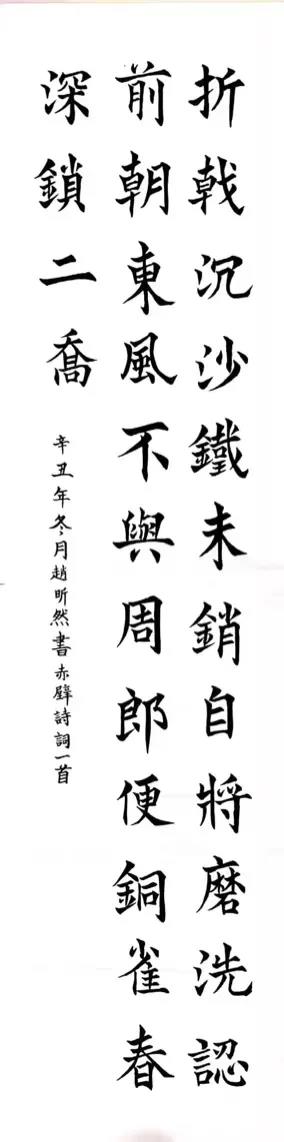 折戟沉沙鐵未銷自將磨洗認
前朝東風不與周郎便銅雀春
深鎖二喬
辛丑年冬月趙昕然書赤壁詩詞一首